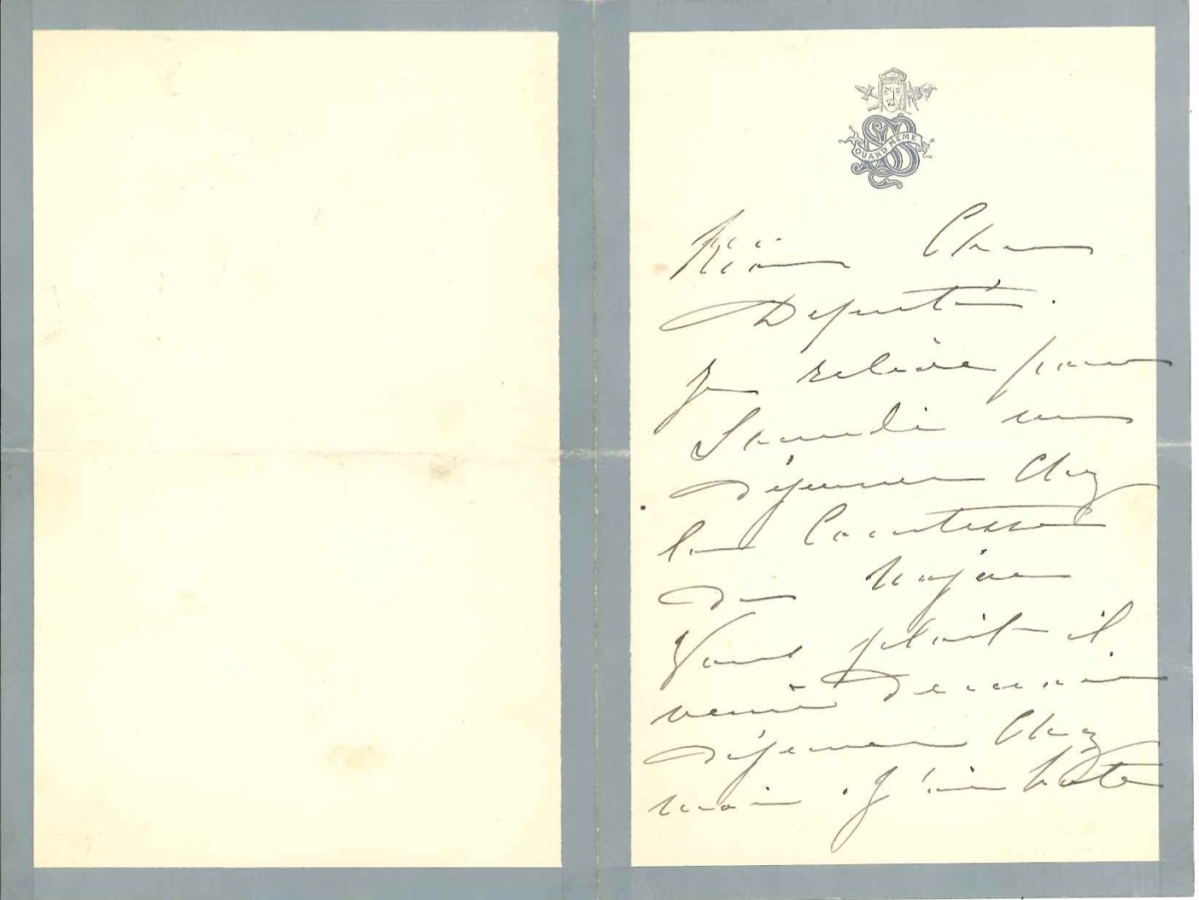 QUAND MEME
Cher
Député.
Je relève pour
Samedi un
Déjeuner Chez
la Comtesse
de Najac
Vous plait il
venir Demain
Déjeuner Chez
moi. J'ai hâte